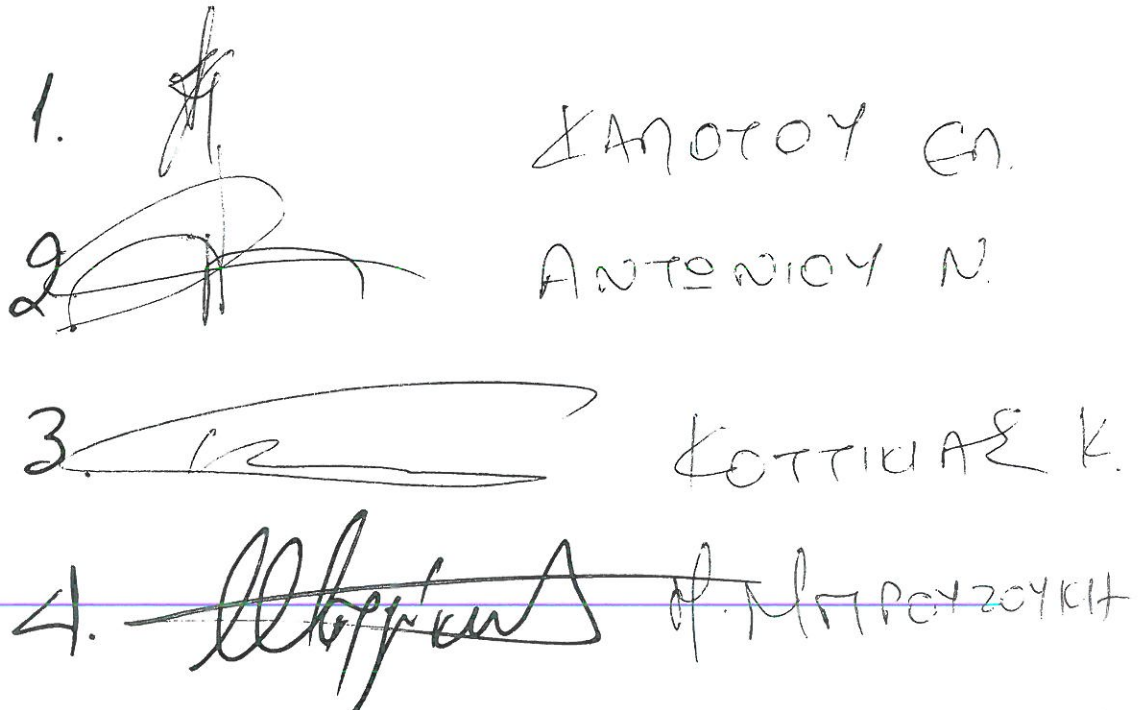 1. ΚΑΠΟΤΟΥ ΕΠ.
2. ΑΝΤΩΝΙΟΥ Ν.
3. ΚΟΤΤΙΚΙΑΣ Κ.
4. Μ. ΜΠΡΟΥΖΟΥΚΗ